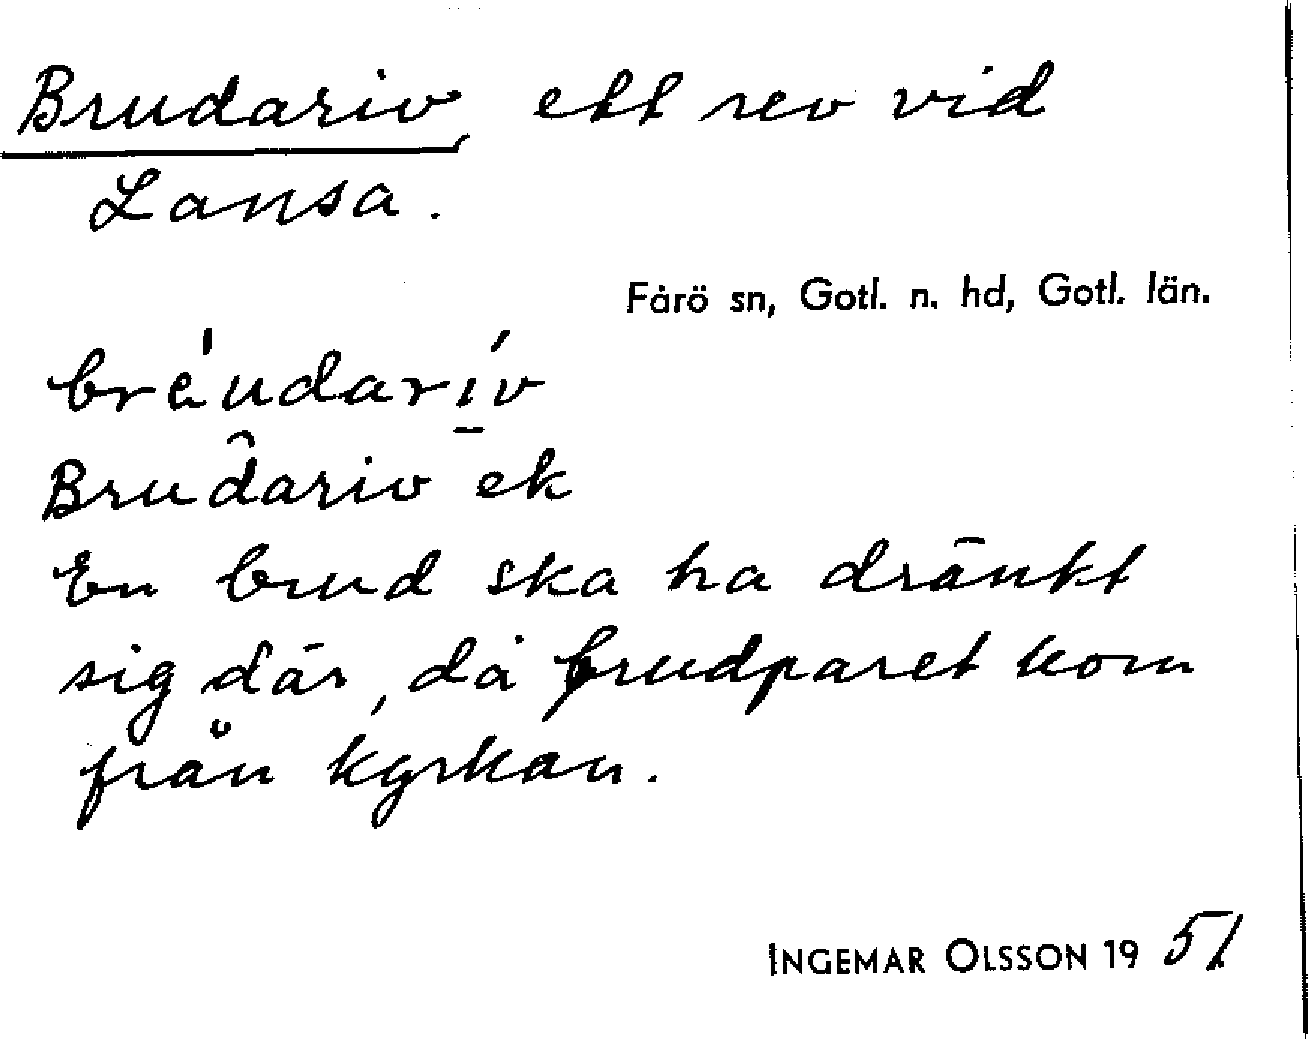 Brudariv, ett rev vid
Lansa.
Fårö sn, Gotl. n. hd, Gotl. län.
bre̍udarí̱v
Brud̑ariv ek
En brud ska ha dränkt
sig där, då brudparet kom
från kyrkan.
INGEMAR OLSSON 1951